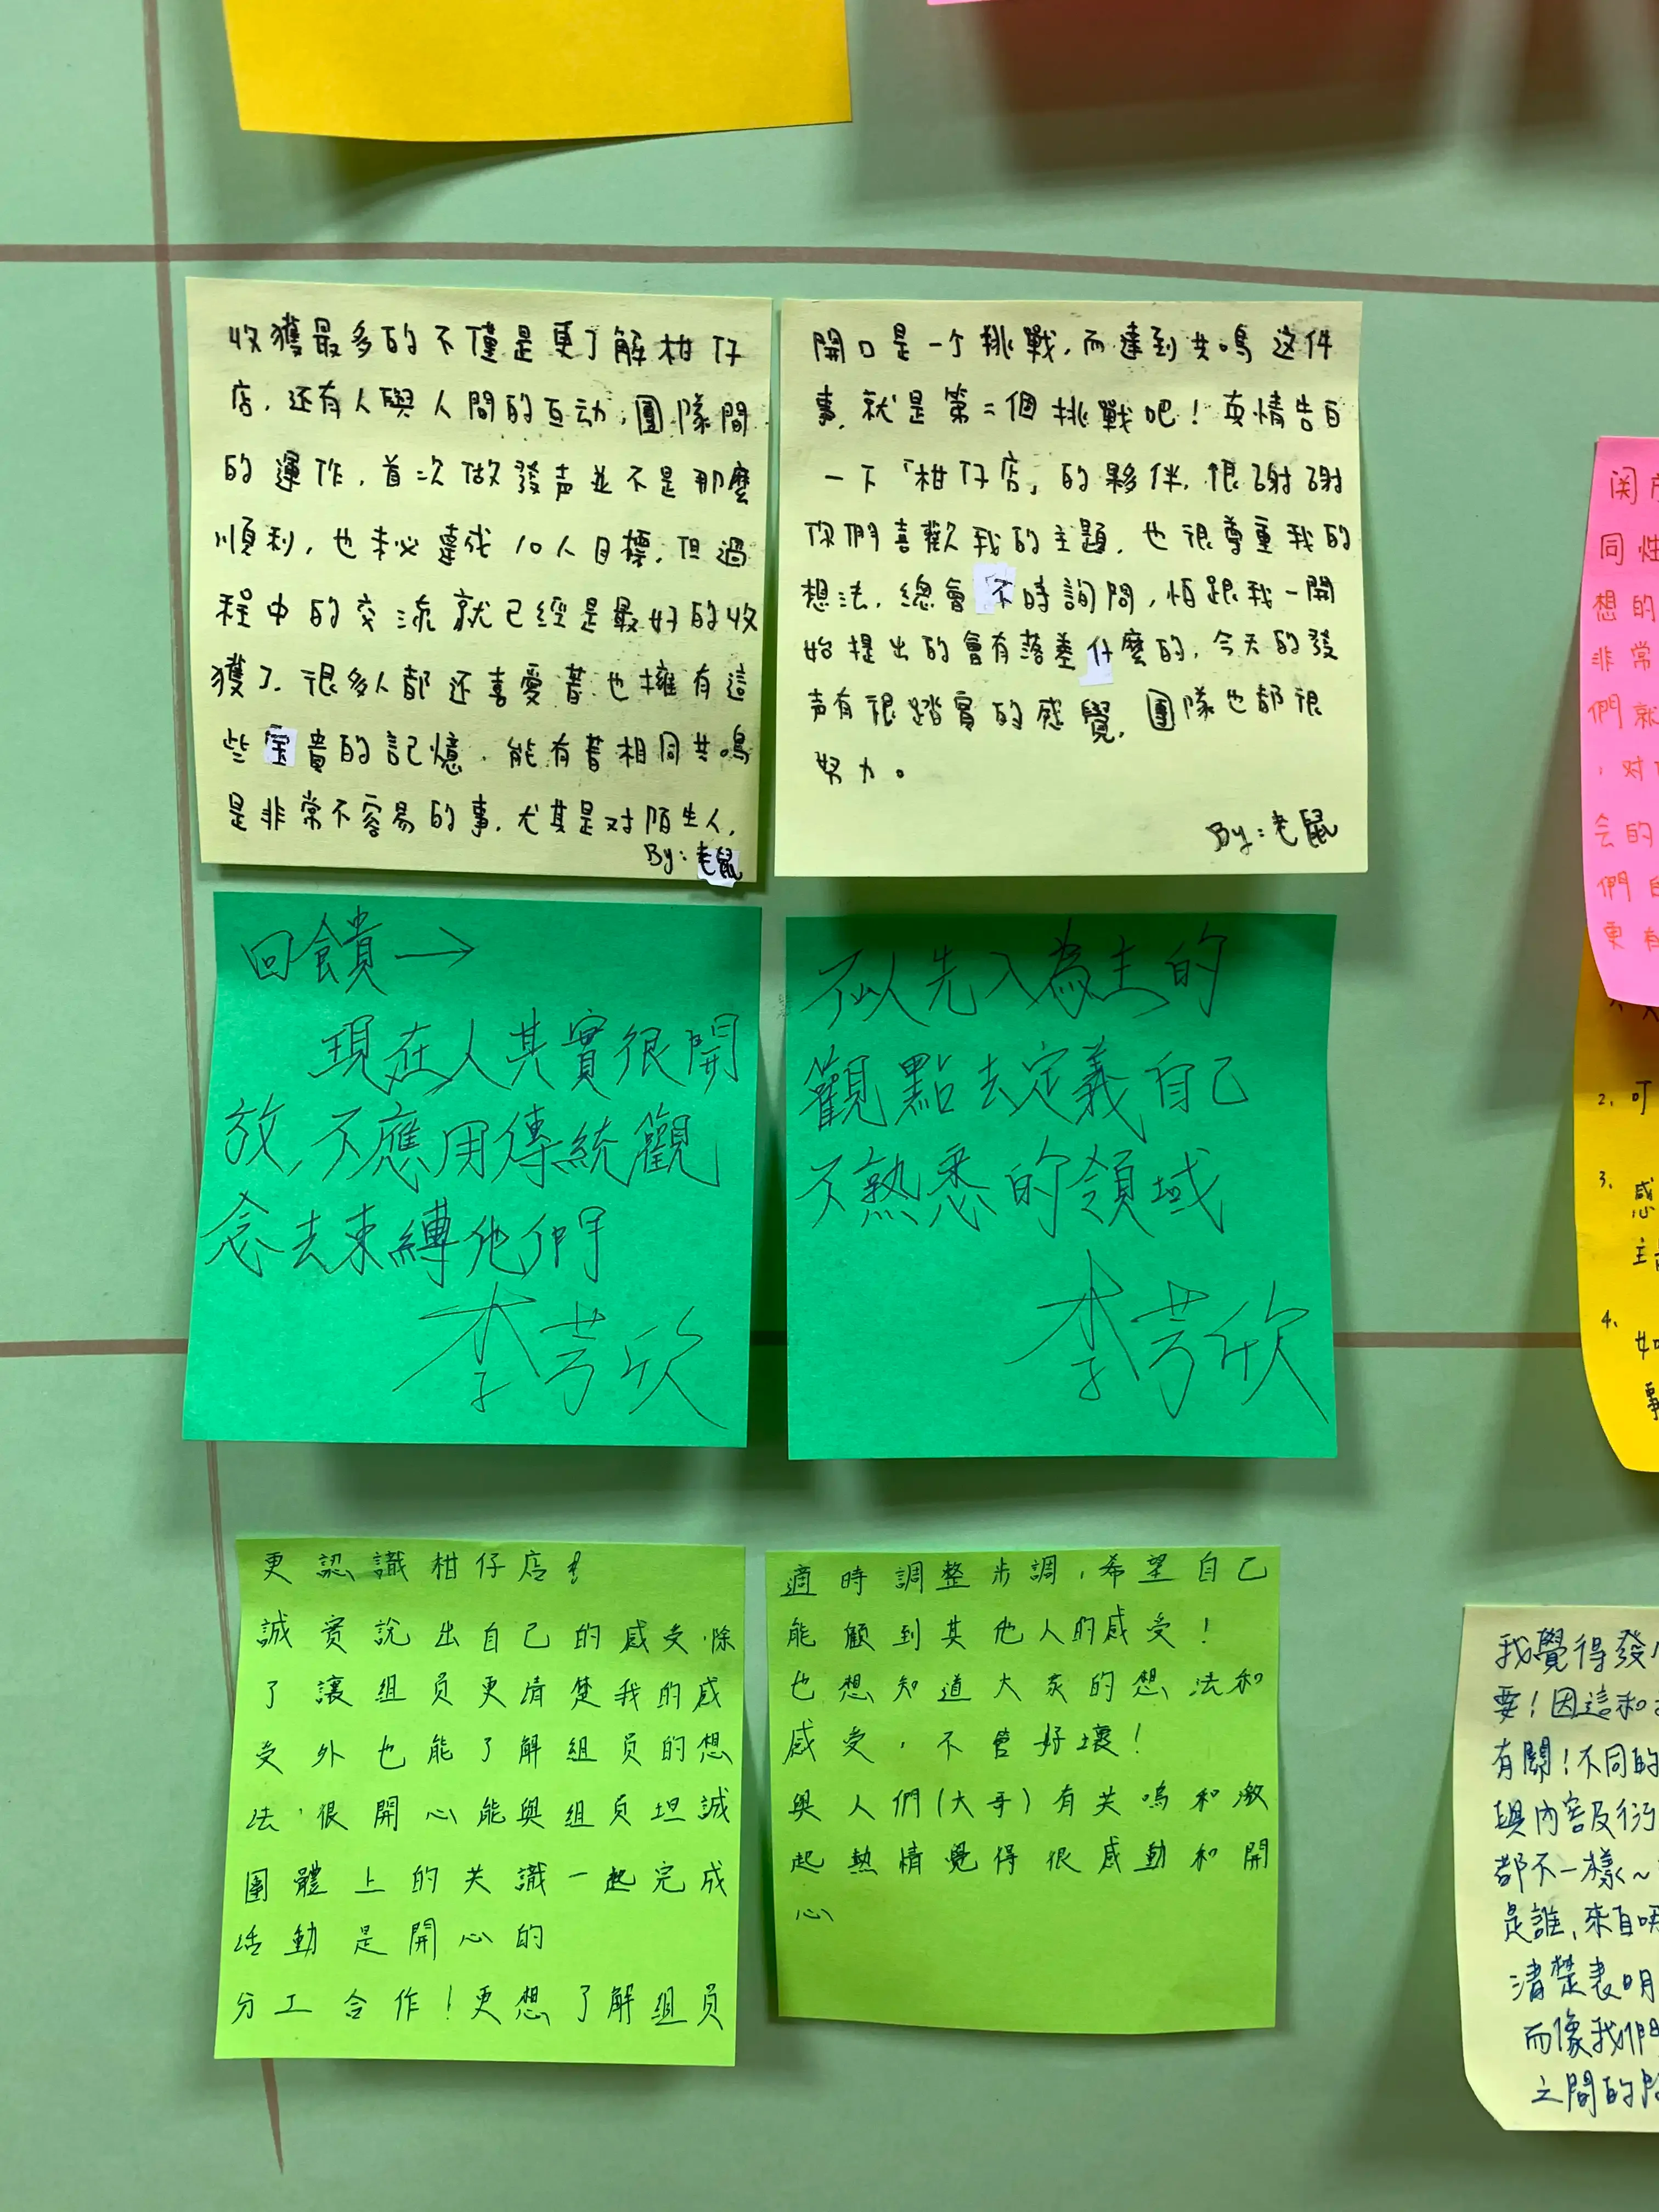 收獲最多的不僅是更了解柑仔
店,还有人與人間的互动,團隊間
的運作,首次做發声並不是那麼
順利,也未必達成10人目標,但過
程中的交流就已經是最好的收
獲了.很多人都还喜愛著也擁有這
些宝貴的記憶.能有著相同共鳴
是非常不容易的事.尤其是对陌生人.
By:老鼠
開口是一个挑戰,而達到共鳴这件
事,就是第二個挑戰吧!真情告白
一下「柑仔店」的夥伴,很謝謝
你們喜歡我的主題,也很尊重我的
想法,總會不時詢問,怕跟我一開
始提出的會有落差什麼的,今天的發
声有很踏實的感覺,團隊也都很
努力。
By:老鼠
回饋→
現在人其實很開
放,不應用傳統觀
念去束縛他們
李芳欣
不以先入為主的
觀點去定義自己
不熟悉的領域
李芳欣
更認識柑仔店!
誠实說出自己的感受,除
了讓組員更清楚我的感
受外也能了解組員的想
法,很開心能與組員坦誠
團體上的共識一起完成
活動是開心的
分工合作!更想了解組員
適時調整步調,希望自己
能顧到其他人的感受!
也想知道大家的想法和
感受,不管好壞!
與人們(大哥)有共鳴和激
起熱情覺得很感動和開
心
同性
想的
非常
們就
,对
会的
們
更有
2.可
3.感
主
4.如
事
我覺得發
要!因這和
有關!不同的
與內容及衍
都不一樣~
是誰,來自
清楚表明
而像我們
之間的